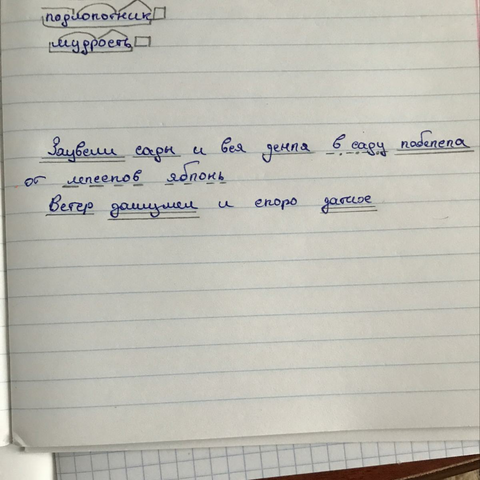 подлокотник
мудрость
Зацвели сады и вся земля в саду побелела
от лепестков яблонь
Ветер зашумел и скоро затих